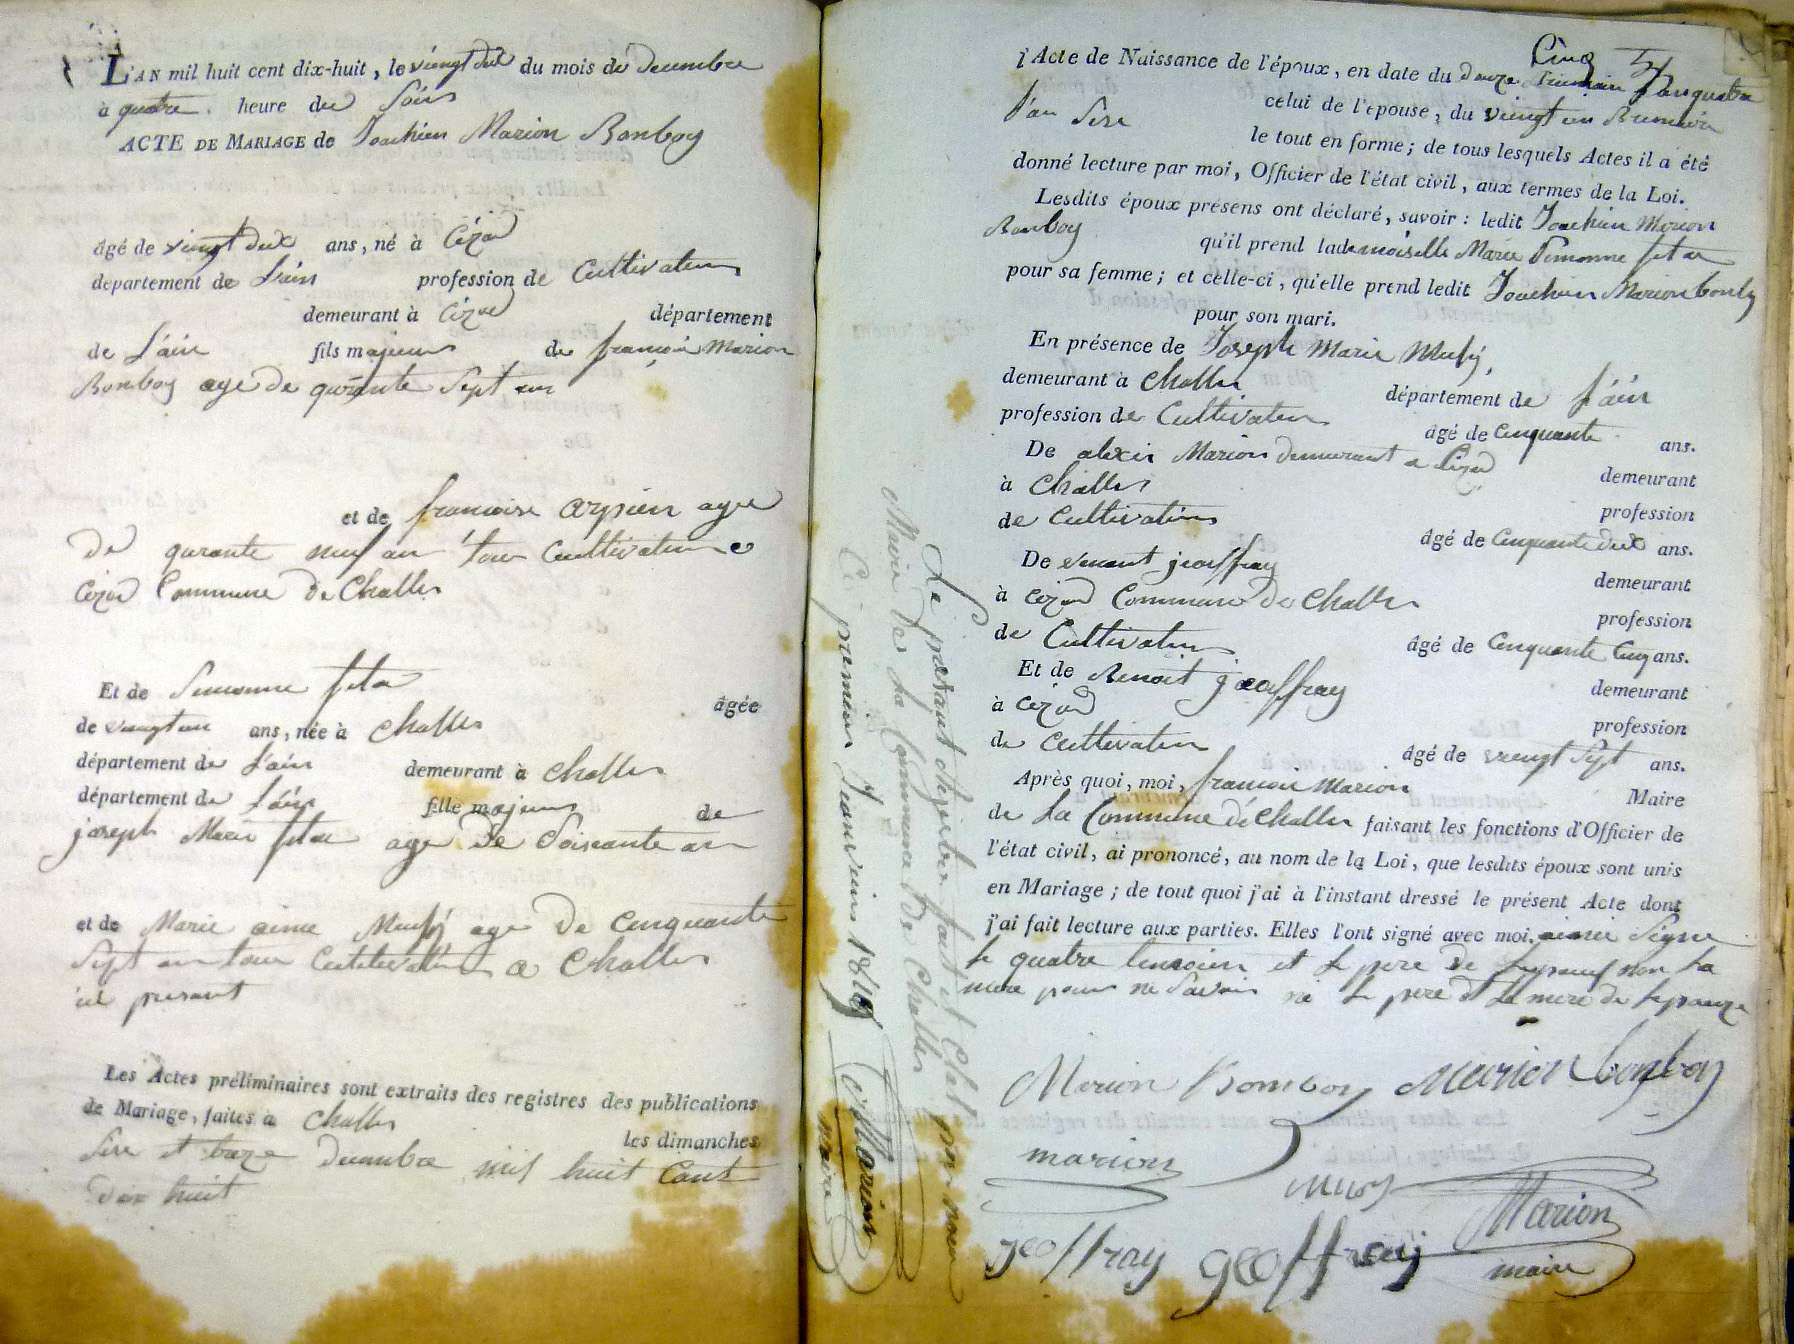 5
L'AN mil huit cent dix-huit, le viengt dux du mois de decembre
à quatre heure du Soir
ACTE DE MARIAGE de Joachien Marion Bonboy
âgé de viengt dux ans, né à Cézia
departement de L'ain profession de Cultivateur
demeurant à Cézia département
de L'ain fils majeur de francois Marion
Bonboy age de qurante Sept ans
et de francoise arpien agee
De qurante neuf an tous Cultivateur a
Commune De Challes
Et de Simonne fita âgée
de viengt un ans, née à Challes
département de L'ain demeurant à Challes
département de L'ain fille majeure de
joseph Marie fita age De Soisante an
et de Marie aime age De Cinquante
Sept an tous Cultivateur a Challes
ici presant
Les Actes préliminaires sont extraits des registres des publications
de Mariage, faites à Challes les dimanches
Sise et traize decembre mil huit Cent
Dix huit
Cinq 5
l'Acte de Naissance de l'époux, en date du douze l'an quatre
celui de l'épouse, du viengt un Brumaire
l'an Sise
le tout en forme; de tous lesquels Actes il a été
donné lecture par moi, Officier de l'état civil, aux termes de la Loi.
Lesdits époux présens ont déclaré, savoir: ledit Joachien Marion
Bonboy qu'il prend lademoiselle Marie Simonne fita
pour sa femme; et celle-ci, qu'elle prend ledit Joachien Marion bonboy
pour son mari.
En présence de Joseph Marie
demeurant à Challes département de L'ain
profession de Cultivateur âgé de Cinquante ans.
De alexis Marion demeurant a Cézia demeurant
à Challes profession
de Cultivateur âgé de Cinquante dux ans.
De jeoffray demeurant
à Cézia Commune de Challes profession
de Cultivateur âgé de Cinquante Cinq ans.
Et de Benoit jeoffray demeurant
à Cézia profession
de Cultivateur âgé de viengt Sept ans.
Après quoi, moi, francois Marion Maire
de La Commune de Challes faisant les fonctions d'Officier de
l'état civil, ai prononcé, au nom de la Loi, que lesdits époux sont unis
en Mariage; de tout quoi j'ai à l'instant dressé le présent Acte dont
j'ai fait lecture aux parties. Elles l'ont signé avec moi. Signe
le quatre temoien et le pere de non La
mere pour ne Savoir ni le pere et La mere de
Marion Bomboy Marion bonboy
marion
Marion
geoffray geoffray maire
Le presant registre fait et Clot par nous
Maire de La Commune de Challes
Ce premier Janvier 1819
Marion
maire